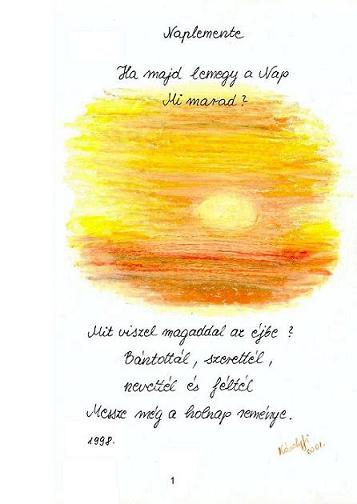 Naplemente
Ha majd lemegy a Nap
Mi marad?
Mit viszel magaddal az éjbe?
Bántottál, szerettél,
nevettél és féltél
Messze még a holnap reménye.
1998.
2001.
1